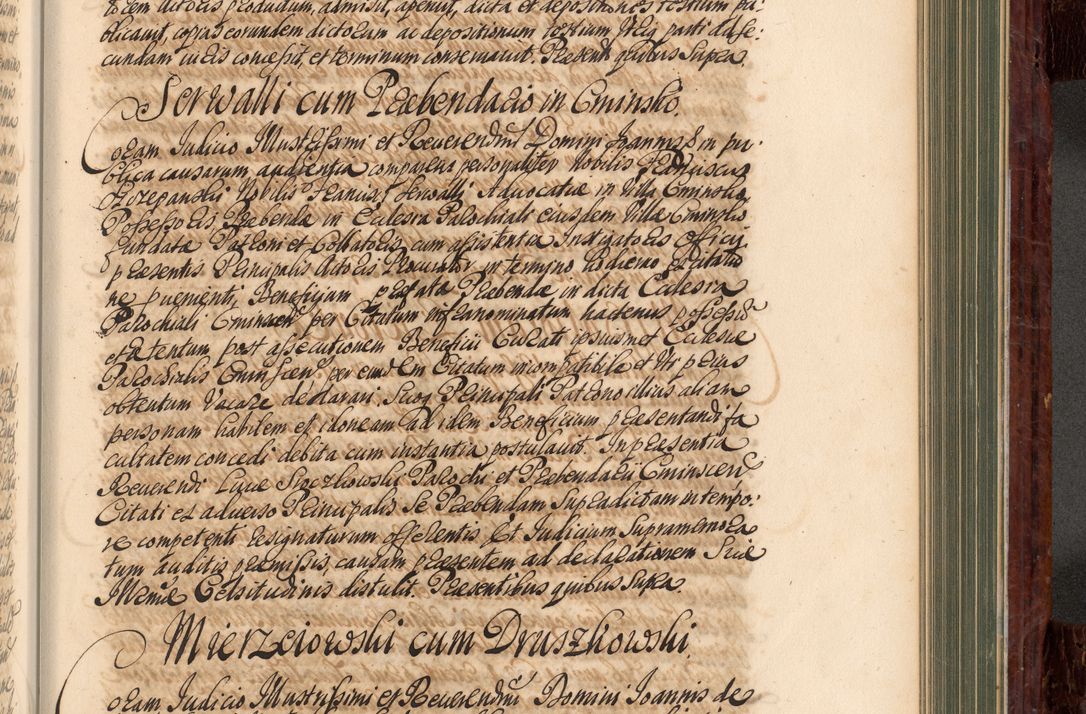 tocem dictoeis productum, admisit, aperuit, dicta et depositiones testium pu-
blicauit, copias eorundem dictorum ac depositionum testium, utriq parti ad se-
cundam iuris concessit, et terminum conseruauit. Presentibus quibus supra.
Serwalli cum Praebendario in Cminsko.
Coram Judicio Illustrissimi et Reuerendissimi Domini Joannis in pu-
blica causarum audientia comparens personaliter Nobilis Franciscus
Szczepanski Nobilis Francisci Serwalli Aduocatiae in Villa Cminsko
Possessoris Praebendae in Ecclesia Parochiali eiusdem Villae Cminsko
fundatae Patroni et Collatoris, cum assistentia Instigatoris Officij
praesentis Principalis Actoris Procurator in termino hodierno ex citatio
ne puenienti, Beneficium praefatae Praebendae in dicta Ecclesia
Parochiali Cminscen. per Citatum infranominatum hactenus possessum
et retentum post assecutionem Beneficii Curati ipsiusmet Ecclesiae
Parochialis Cminscens. per eundem Citatum incompatibile et uti praeuias
obtentum Vacare declarari, suoq Principali Patrono illius aliam
personam habilem et idoneam ad idem Beneficium praesentandi fa
cultatem concedi debita cum instantia postulauit. In praesentia
Reuerendi Lucae Stoczkowski Parochi et Praebendarii Cminscen.
Citati ex aduerso Principalis se Praebendam supradictam in tempo-
re competenti resignaturum offerentis, Et Judicium supramemora
tum auditis praemissis, causam praesentem ad declarationem Suae
Illmae Celsitudinis distulit. Praesentibus quibus supra.
Mierzeiowski cum Druszkowski.
Coram Judicio Illustrissimi et Reuerendissimi Domini Joannis de